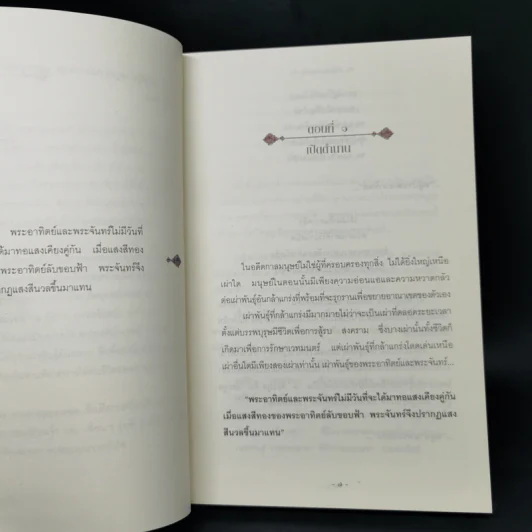 พระอาทิตย์และพระจันทร์ไม่มีวันที่
ได้มาทอแสงเคียงคู่กัน เมื่อแสงสีทอง
พระอาทิตย์ลับขอบฟ้า พระจันทร์จึง
ปรากฏแสงสีนวลขึ้นมาแทน
ตอนที่ ๑
เปิดตำนาน
ในอดีตกาลมนุษย์ไม่ใช่ผู้ที่ครอบครองทุกสิ่ง ไม่ได้ยิ่งใหญ่เหนือ
เผ่าใด มนุษย์ในตอนนั้นมีเพียงความอ่อนแอและความหวาดกลัว
ต่อเผ่าพันธุ์อันกล้าแกร่งที่พร้อมที่จะรุกรานเพื่อขยายอาณาเขตของตัวเอง
เผ่าพันธุ์ที่กล้าแกร่งมีมากมายไม่ว่าจะเป็นเผ่าที่ตลอดระยะเวลา
ตั้งแต่บรรพบุรุษมีชีวิตเพื่อการสู้รบ สงคราม ซึ่งบางเผ่านั้นทั้งชีวิตก็
เกิดมาเพื่อการรักษาเวทมนตร์ แต่เผ่าพันธุ์ที่กล้าแกร่งโดดเด่นเหนือ
เผ่าอื่นใดมีเพียงสองเผ่าเท่านั้น เผ่าพันธุ์ของพระอาทิตย์และพระจันทร์...
"พระอาทิตย์และพระจันทร์ไม่มีวันที่จะได้มาทอแสงเคียงคู่กัน
เมื่อแสงสีทองของพระอาทิตย์ลับขอบฟ้า พระจันทร์จึงปรากฏแสง
สีนวลขึ้นมาแทน"